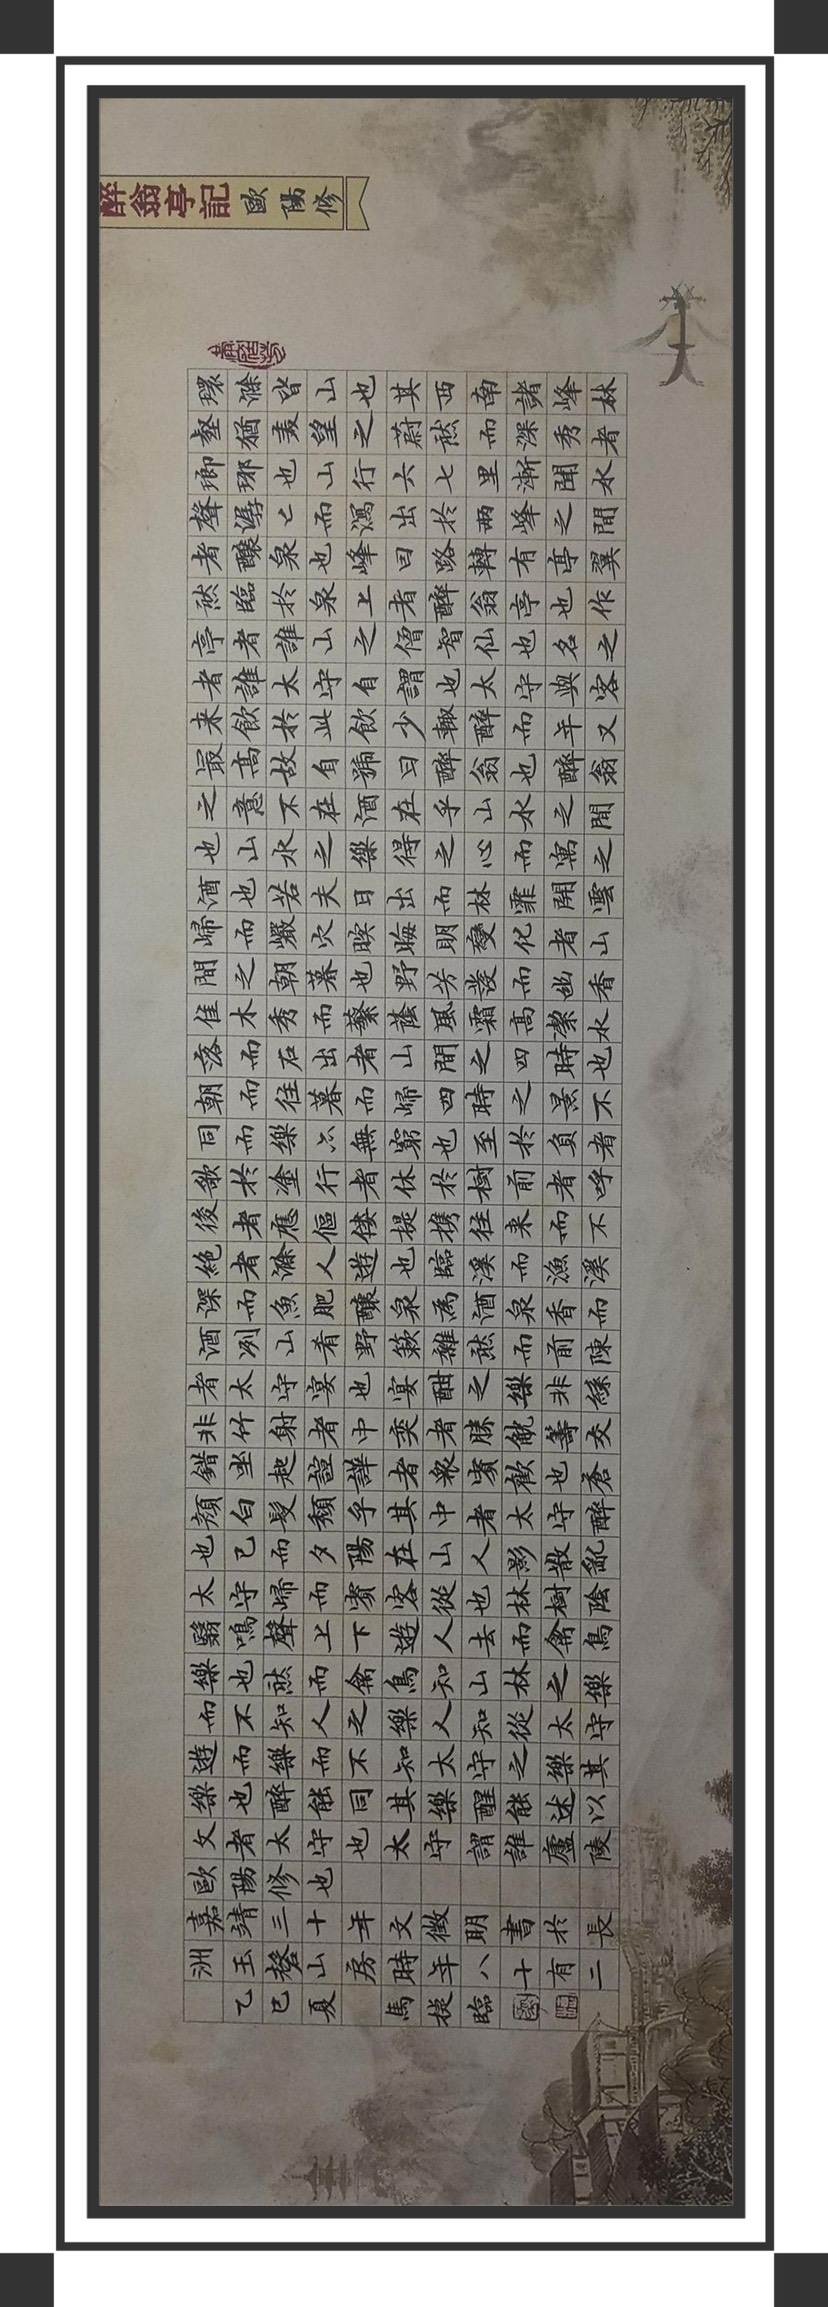 醉翁亭記 歐陽修
環滁皆山也其西南諸峰林
壑猶美望之蔚然而深秀者
瑯琊也山行六七里漸聞水
聲潺〻而瀉出於兩峰之間
者釀泉也峰回路轉有亭翼
然臨於泉上者醉翁亭也作
亭者誰山之僧智仙也名之
者誰太守自謂也太守與客
来飲於此飲少輒醉而年又
最高故自號曰醉翁也醉翁
之意不在酒在乎山水之間
也山水之樂得之心而寓之
酒也若夫日出而林霏開雲
歸而巖穴暝晦明變化者山
間之朝暮也野芳發而幽香
佳木秀而繁蔭風霜高潔水
落而石出者山間之四時也
朝而往暮而歸四時之景不
同而樂亦無窮也至於負者
歌於塗行者休於樹前者呼
後者應傴僂提攜往来而不
絕者滁人遊也臨溪而漁溪
深而魚肥釀泉為酒泉香而
酒冽山肴野蔌雜然而前陳
者太守宴也宴酣之樂非絲
非竹射者中奕者勝觥籌交
錯坐起諠譁者衆賓歡也蒼
顏白髮頹乎其中者太守醉
也已而夕陽在山人影散亂
太守歸而賓客從也樹林陰
翳鳴聲上下遊人去而禽鳥
樂也然而禽鳥知山林之樂
而不知人之樂人知從太守
遊而樂而不知太守之樂其
樂也醉能同其樂醒能述以
文者太守也太守謂誰廬陵
歐陽修也
嘉靖三十年文徵明書於長
洲玉磬山房時年八十有二
乙巳夏馬捷臨